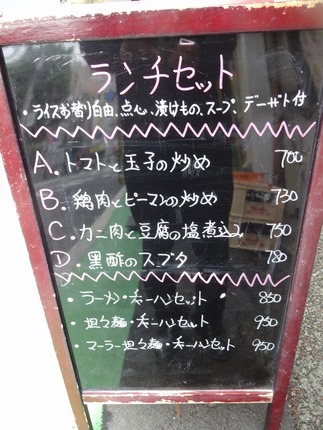 ランチセット
・ライスお替り自由、点心、漬けもの、スープ、デーザート付
A.トマトと玉子の炒め 700
B.鶏肉とピーマンの炒め 730
C.カニ肉と豆腐の塩煮込み 750
D.黒酢のスブタ 780
・ラーメン・チャーハンセット 850
・坦々麺・チャーハンセット 950
・マーラー坦々麺・チャーハンセット 950